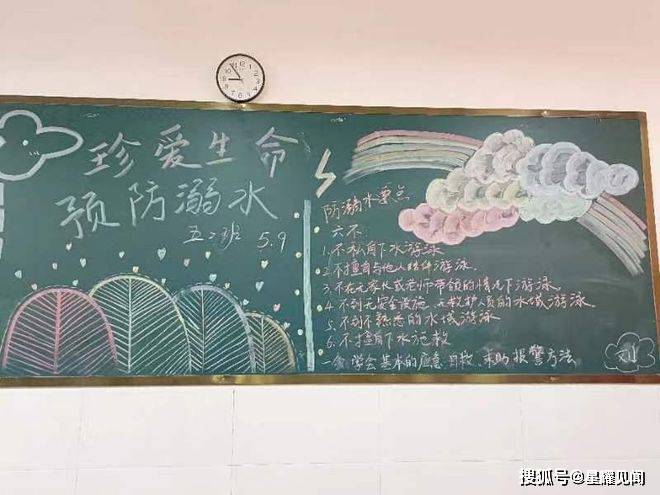 珍爱生命
预防溺水
五二班 5.9
防溺水要点
六不:
1.不私自下水游泳
2.不擅自与他人结伴游泳.
3.不在无家长或老师带领的情况下游泳.
4.不到无安全设施、无救护人员的水域游泳
5.不到不熟悉的水域游泳
6.不擅自下水施救
一会 学会基本的应急自救、求助、报警方法
刘
搜狐号@星耀见闻